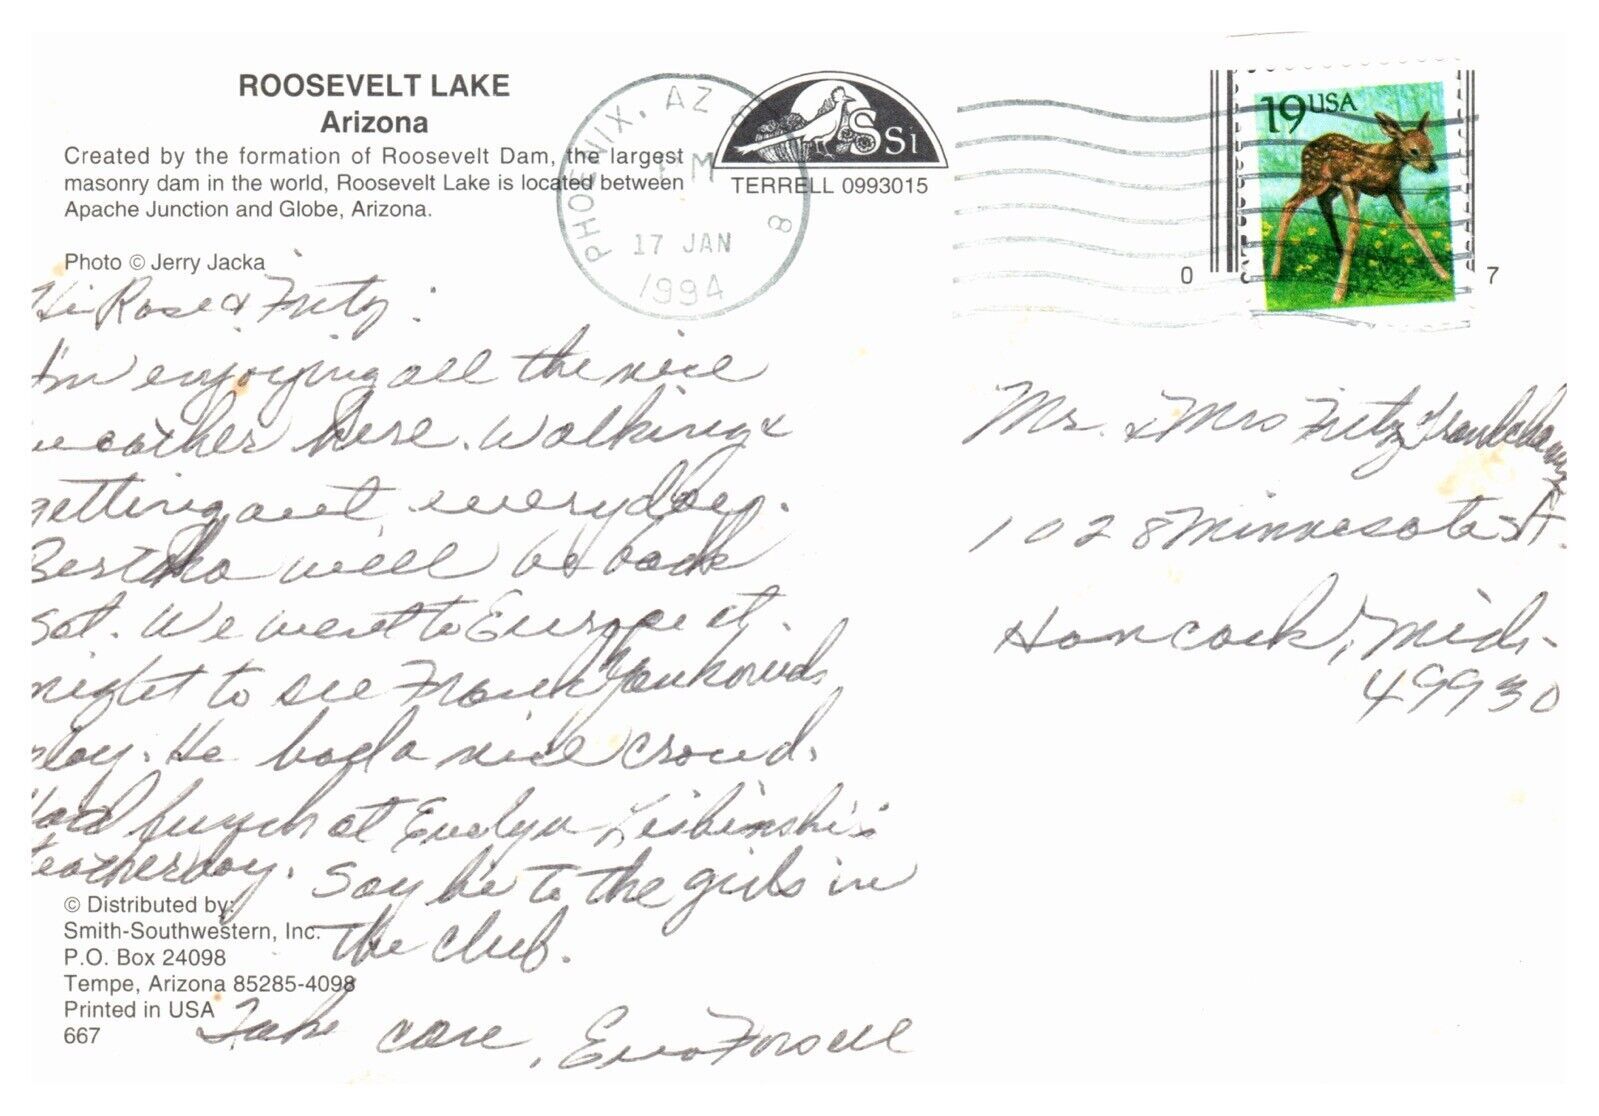 ROOSEVELT LAKE
Arizona
Created by the formation of Roosevelt Dam, the largest
masonry dam in the world, Roosevelt Lake is located between
Apache Junction and Globe, Arizona.
Photo © Jerry Jacka
PHOENIX, AZ
PM
17 JAN
1994
SSi
TERRELL 0993015
19 USA
0 7
Hi Rose & Fritz:
I'm enjoying all the nice
weather here. Walking &
getting out everyday.
Bertha will be back
Sat. We went to Europe st.
night to see Frank Yankovich
play. He had a nice crowd.
Had lunch at Evelyn
yesterday. Say hi to the girls in
the club.
Take care,
Forsell
© Distributed by:
Smith-Southwestern, Inc.
P.O. Box 24098
Tempe, Arizona 85285-4098
Printed in USA
667
Mr. & Mrs Fritz
1028 Minnesota St.
Hancock, Mich.
49930